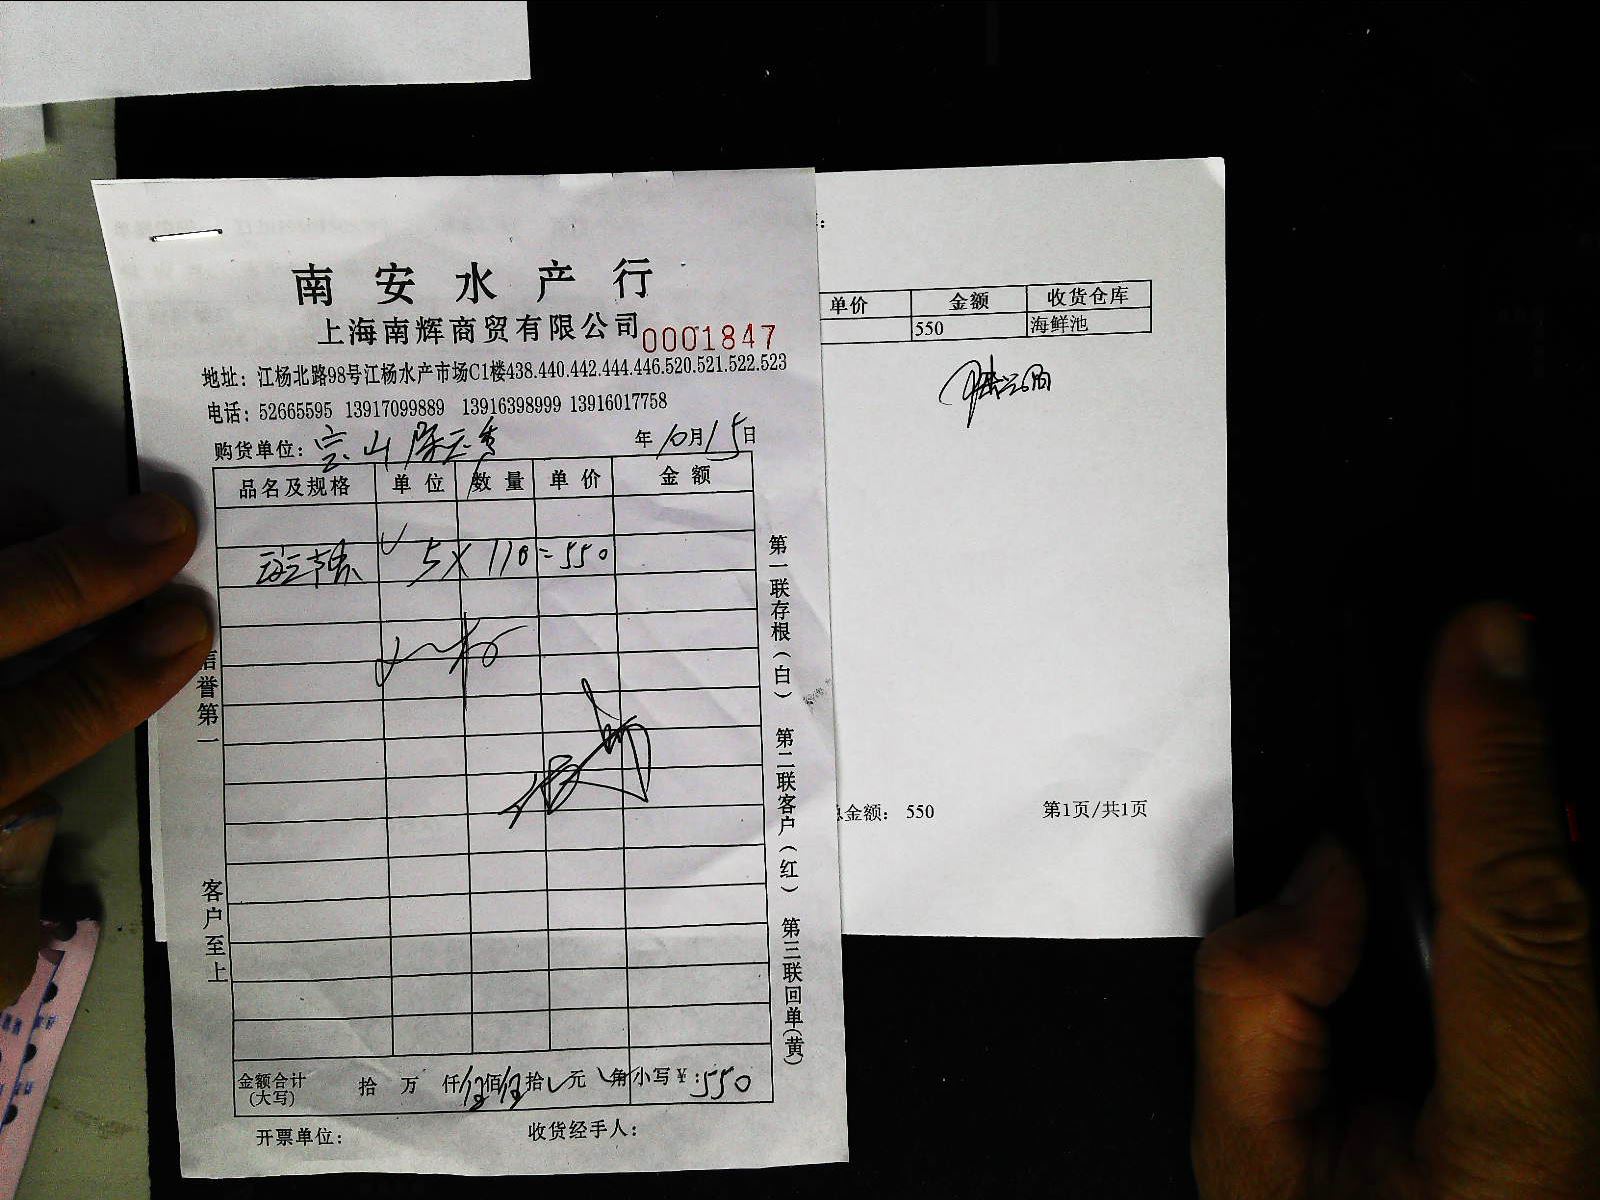 南安水产行
上海南辉商贸有限公司 0001847
地址：江杨北路98号江杨水产市场C1楼438.440.442.444.446.520.521.522.523
电话：52665595 13917099889 13916398999 13916017758
购货单位：宝山 年10月15日
品名及规格 单位 数量 单价 金额
5×110=550
金额合计(大写) 拾 万 仟伍佰伍拾 元 角 小写￥：550
开票单位： 收货经手人：
信誉第一
客户至上
第一联存根(白) 第二联客户(红) 第三联回单(黄)
单价 金额 收货仓库
550 海鲜池
总金额： 550 第1页/共1页